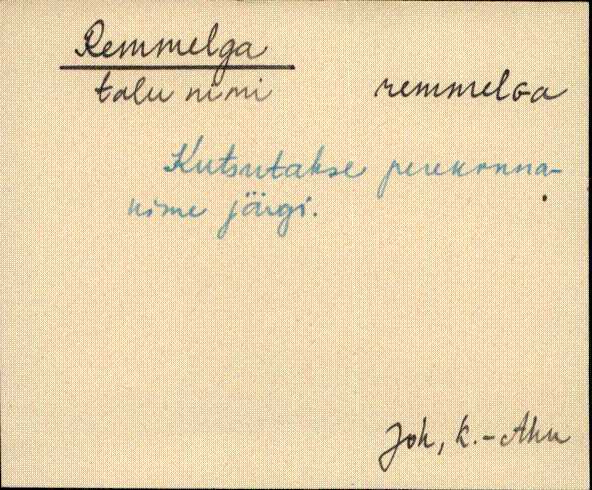 Remmelga
talu nimi remmelGa
Kutsutakse perekonna-
nime järgi.
Joh, k. - Ahu